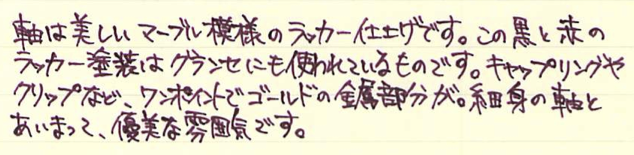 軸は美しいマーブル模様のラッカー仕上げです。この黒と赤の
ラッカー塗装はグランセにも使われているものです。キャップリングや
クリップなど、ワンポイントでゴールドの金属部分が。細身の軸と
あいまって、優美な雰囲気です。